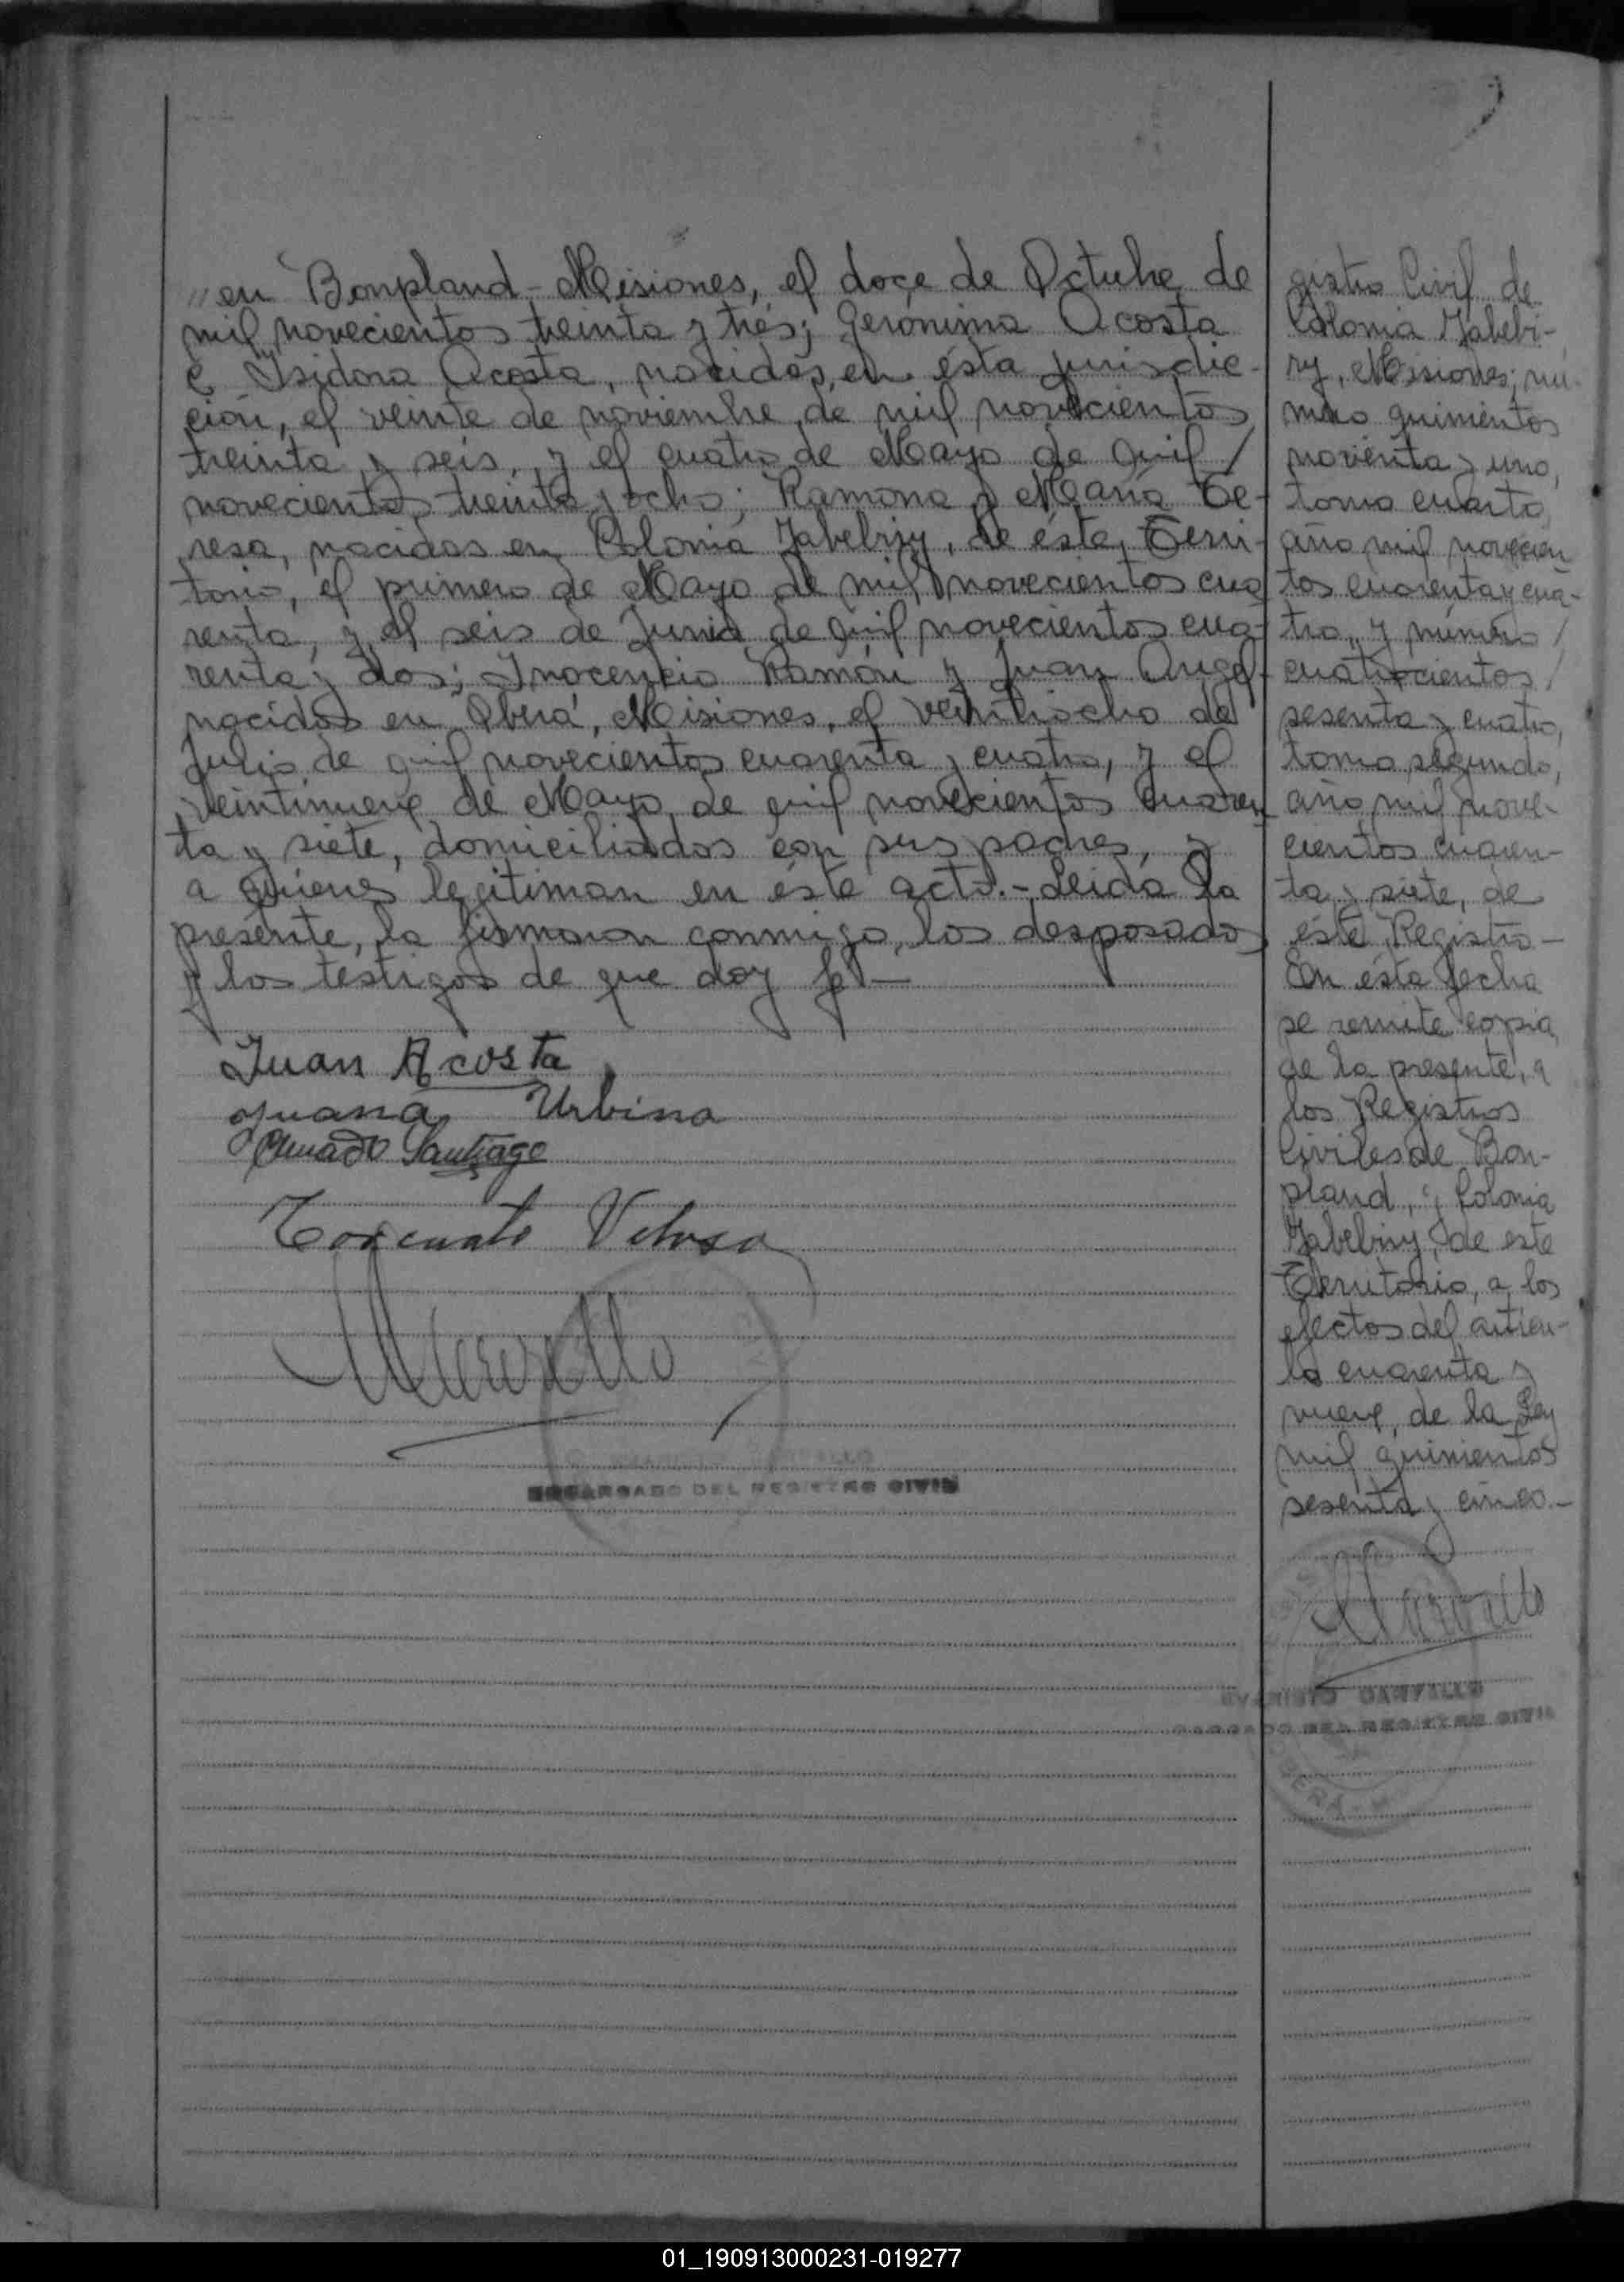 "en Bonpland - Misiones, el doce de Octubre de
mil novecientos treinta y trés; Geronima Acosta
é Isidora Acosta, nacidas, en ésta jurisdic-
ción, el veinte de noviembre de mil novecientos
treinta y seis, y el cuatro de Mayo de mil /
novecientos treinta y ocho; Ramona y María Te-
resa, nacidas en Colonia Yabebiry, de éste Terri-
torio, el primero de Mayo de mil novecientos cua
renta, y el seis de Junio de mil novecientos cua-
renta y dos; Inocencio Ramón y Juan Angel-
nacidos en Oberá, Misiones, el veintiocho de
Julio de mil novecientos cuarenta y cuatro, y el
veintinueve de Mayo de mil novecientos cuaren
ta y siete, domiciliados con sus padres, y
a quienes legitiman en éste acto.- Leida la
presente, la firmaron conmigo, los desposados
y los testigos de que doy fé-
Juan Acosta
Juana Urbina
Amado Santiago
Torcuato
ENCARGADO DEL REGISTRO CIVIL
gistro Civil de
Colonia Yabebi-
ry, Misiones; nú-
mero quinientos
noventa y uno,
tomo cuarto,
año mil novecien
tos cuarenta y cua-
tro, y número /
cuatrocientos /
sesenta y cuatro,
tomo segundo,
año mil nove-
cientos cuaren-
ta y siete, de
éste Registro-
En ésta fecha
se remite copia
de la presente, a
los Registros
Civiles de Bon-
pland, y Colonia
Yabebiry, de este
Territorio, a los
efectos del artícu-
lo cuarenta y
nueve, de la Ley
mil quinientos
sesenta y cinco.-
EVARISTO CARVALLO
ENCARGADO DEL REGISTRO CIVIL
01_190913000231-019277